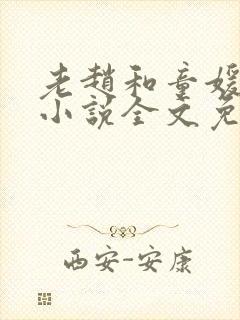 老赵和童媛
小说全文免
西安-安康